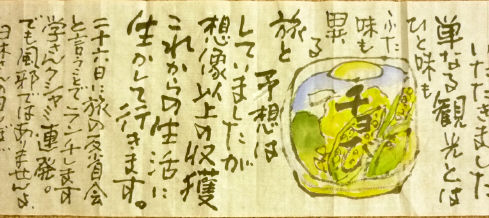 いただきました
単なる観光とは
ひと味も
ふた
味も
異
る
旅と
予想は
していましたが
想像以上の収穫
これからの生活に
生かして行きます。
二十六日に旅の反省会
と言うことでランチします
学さんクシャミ連発。
でも風邪ではありません。